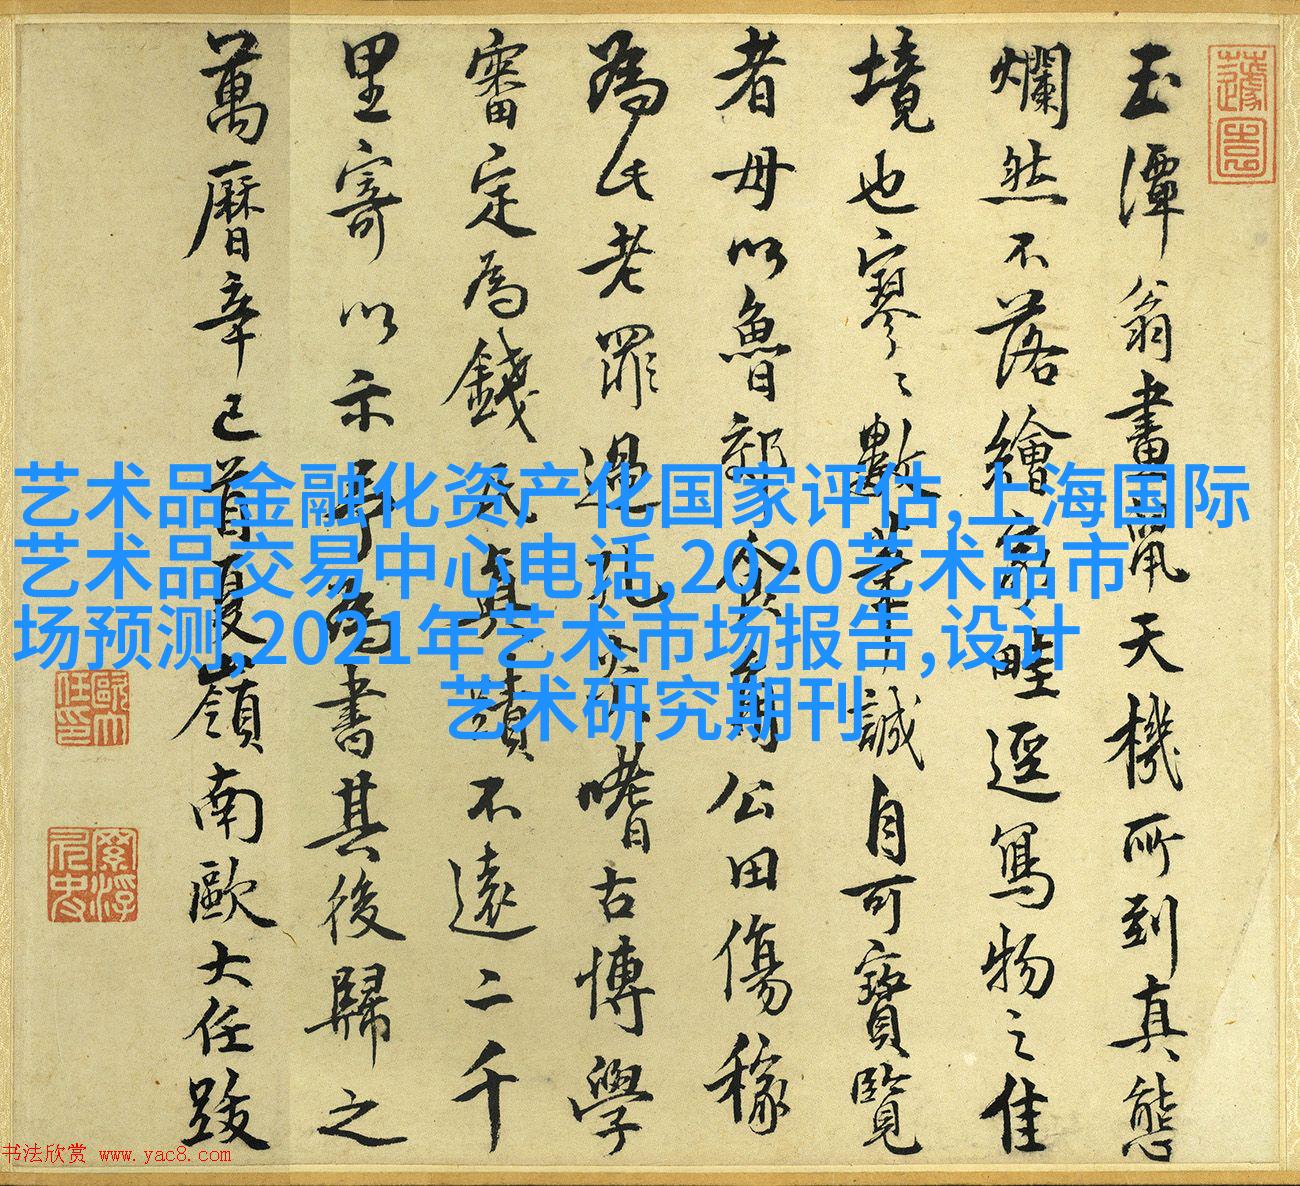 玉潭翁畫鼠天機所到真態
爛然不落繪家畦逕寫物之佳
境也寥〻數筆誠自可寶覽
者毋以魯郊食角公田傷稼
為此老罪過孔炎嗜古博學
審定為錢氏真蹟不遠二千
里寄以示予為書其後歸之
萬曆辛巳首夏嶺南歐大任跋
歐大任印
艺术品金融化资产化国家评估,上海国际
艺术品交易中心电话,2020艺术品市
场预测,2021年艺术市场报告,设计
艺术研究期刊
书法欣赏 www.yac8.com